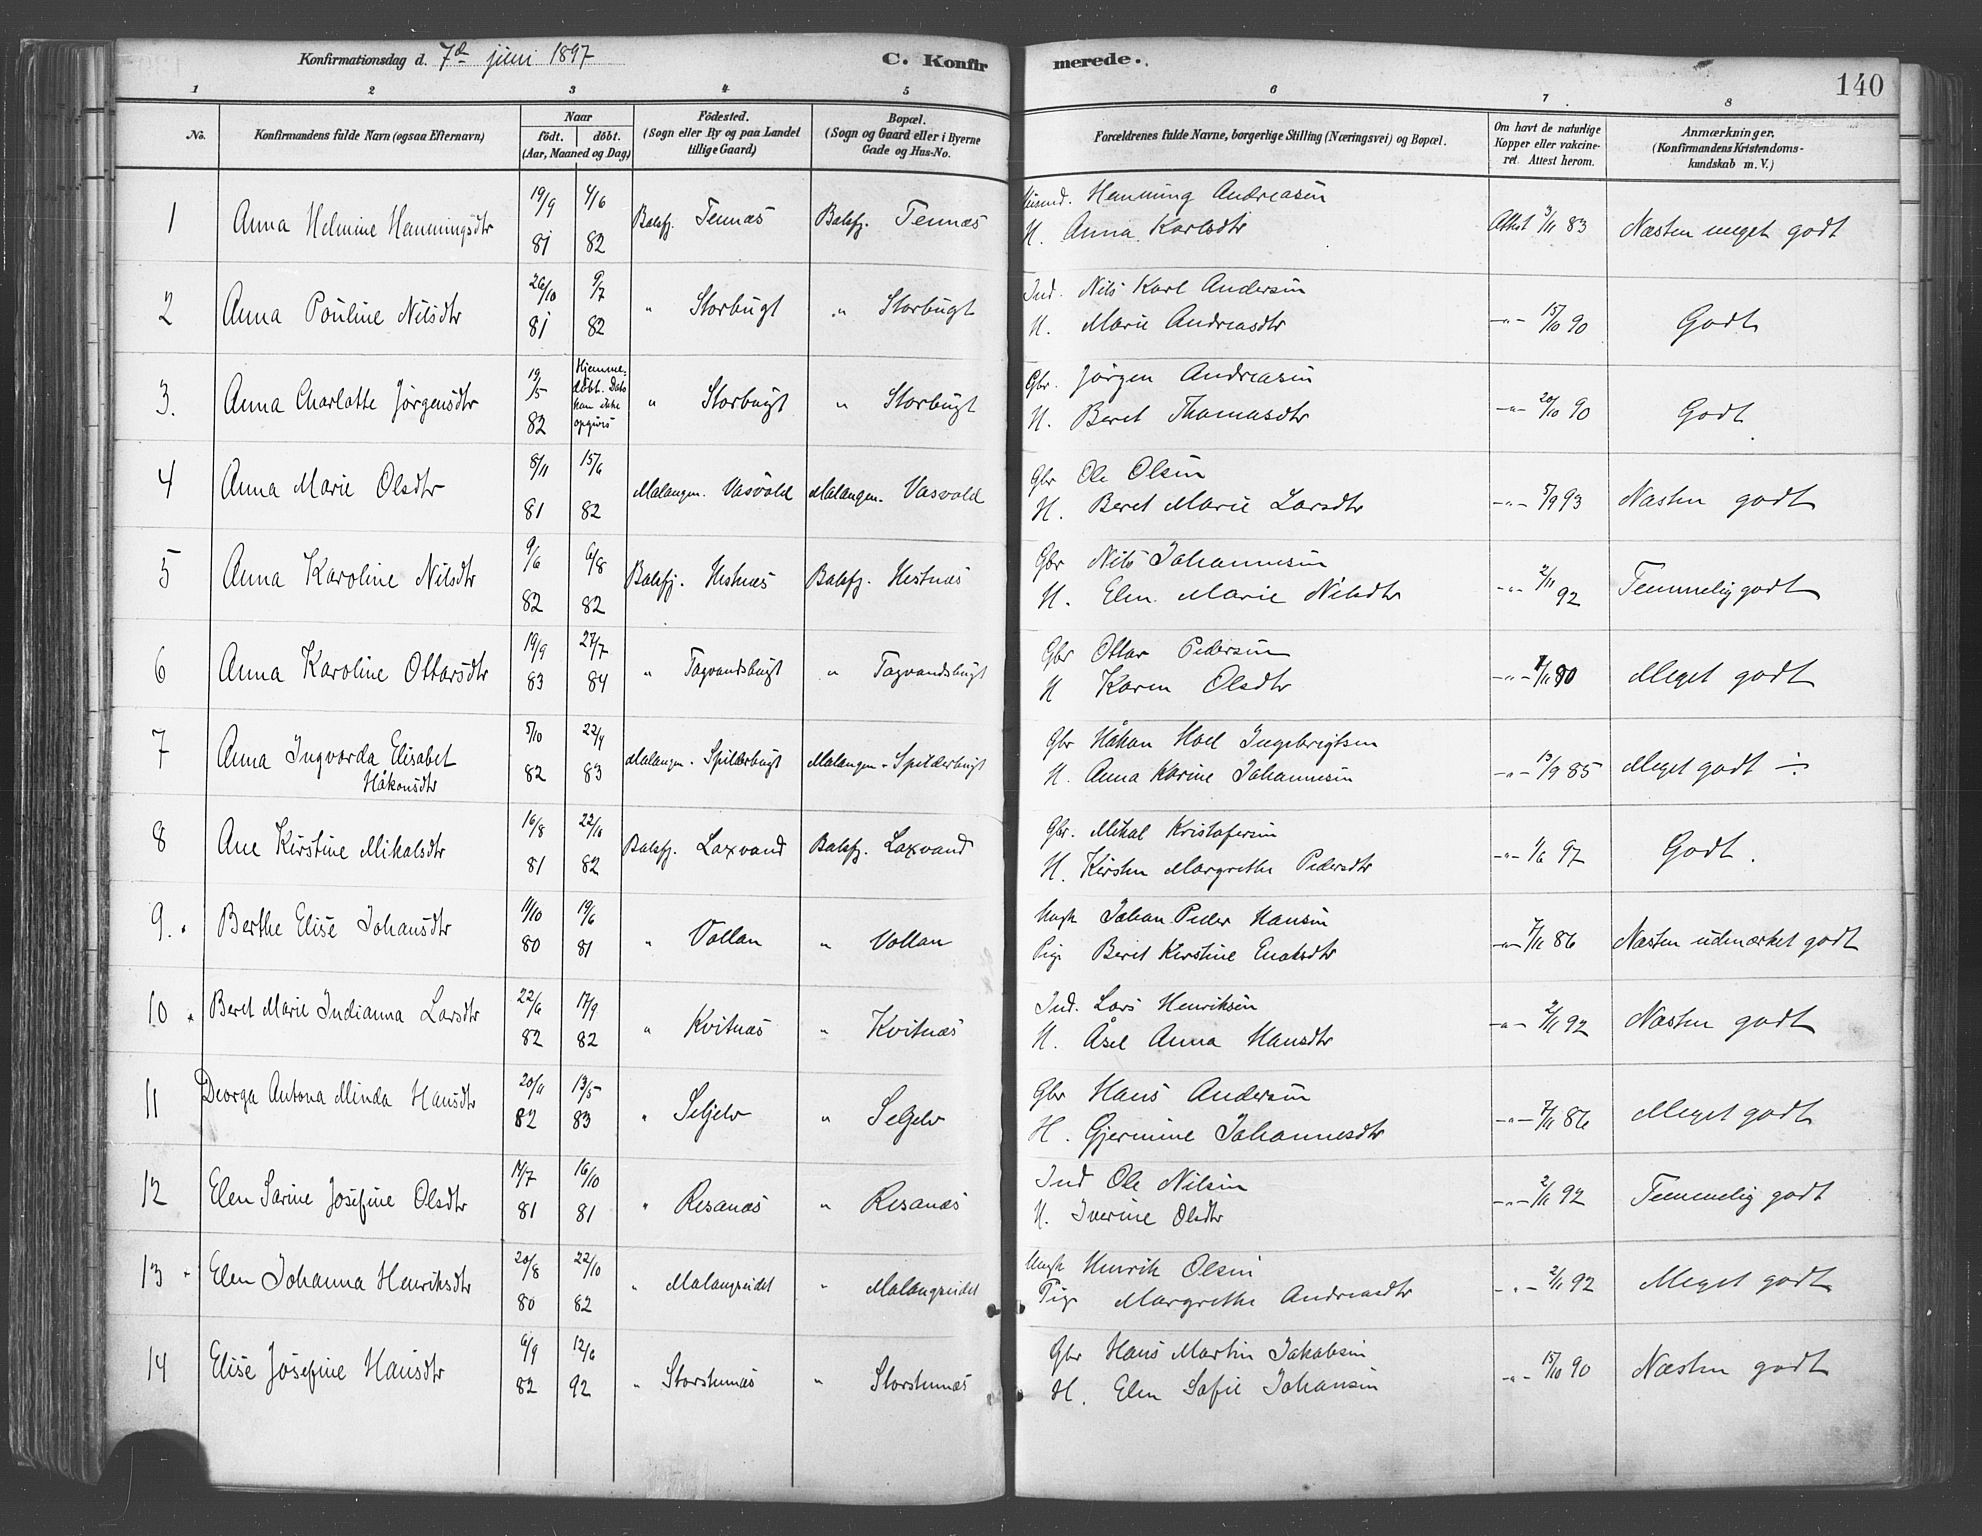 Konfirmationsdag d. 7de juni 1897 C. Konfirmerede. 140
1 2 3 4 5 6 7 8
No. Konfirmandens fulde Navn (ogsaa Efternavn) Naar födt. döbt. (Aar, Maaned og Dag) Födested. (Sogn eller By og paa Landet tillige Gaard) Bopæl. (Sogn og Gaard eller i Byerne Gade og Hus-No. Forældrenes fulde Navne, borgerlige Stilling (Næringsvei) og Bopæl. Om havt de naturlige Kopper eller vakcineret. Attest herom. Anmærkninger. (Konfirmandens Kristendomskundskab m. V.)
1 Anna Helmine Hemmingsdtr 19/9 81 4/6 82 Balsfj. Tennæs Balsfj. Tennæs Husmd. Hemming Andreasen H. Anna Karlsdtr Attest 3/11 83 Næsten meget godt
2 Anna Pouline Nilsdtr 26/10 81 9/7 82 " Storbugt " Storbugt Ind. Nils Karl Andersen H. Marie Andreasdtr -"- 15/10 90 Godt
3. Anna Charlotte Jørgensdtr 19/5 82 Hjemmedöbt. Dato kan ikke opgives " Storbugt " Storbugt Gbr. Jørgen Andreasen H. Beret Thomasdtr -"- 20/10 90 Godt
4 Anna Marie Olsdtr 8/11 81 15/6 82 Malangen. Vasvold Malangen. Vasvold Gbr Ole Olsen H. Beret Marie Larsdtr -"- 5/9 93 Næsten godt
5 Anna Karoline Nilsdtr 9/6 82 6/8 82 Balsfj. Hestnæs Balsfj. Hestnæs Gbr Nils Johannesen H. Elen Marie Nilsdtr -"- 2/11 92 Temmelig godt
6 Anna Karoline Ottarsdtr 19/9 83 27/7 84 " Tagvandsbugt " Tagvandsbugt Gbr Ottar Pedersen H Karen Olsdtr -"- Meget godt
7 Anna Ingvarda Elisabet Håkonsdtr 5/10 82 22/4 83 Malangen - Spilderbugt Malangen - Spilderbugt Gbr Håkon Hoel Ingebrigtsen H. Anna Karine Johannesen -"- 13/9 85 Meget godt ÷
8 Ane Kirstine Mikalsdtr 16/8 81 22/6 82 Balsfj. Laxvand Balsfj. Laxvand Gbr. Mikal Kristofersen H. Kirsten Margrethe Pedersdtr -"- 1/6 97 Godt.
9. Berthe Elise Johansdtr 11/10 80 19/6 81 " Vollan " Vollan Ungk Johan Peder Hansen Pige Beret Kirstine Enoksdtr -"- 7/11 86 Næsten udmærket godt
10 Beret Marie Indianna Larsdtr 22/6 82 17/9 82 " Kvitnæs " Kvitnæs Ind. Lars Henriksen H. Åsel Anna Hansdtr -"- 2/11 92 Næsten godt
11 Deorga Antona Minda Hansdtr 20/11 82 13/5 83 " Seljelv " Seljelv Gbr Hans Andersen H. Gjermine Johannesdtr -"- 7/11 86 Meget godt
12 Elen Sarine Josefine Olsdtr 17/7 81 16/10 81 " Resanæs " Resanæs Ind Ole Nilsen H. Iverine Olsdtr -"- 2/11 92 Temmelig godt
13 Elen Johanna Henriksdtr 20/8 80 22/10 82 " Malangseidet " Malangseidet Ungk Henrik Olsen Pige Margrethe Andreasdtr -"- 2/11 92 Meget godt
14 Elise Josefine Hansdtr 6/9 82 12/6 92 " Storstennæs " Storstennæs Gbr Hans Martin Jakobsen H. Elen Sofie Johansen -"- 15/10 90 Næsten godt